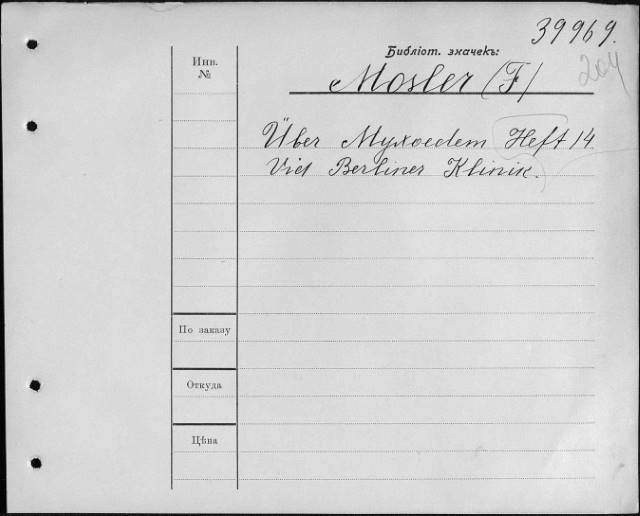 39969.
Библіот. значекъ:
204
Инв.
№
Mosler (F)
Über Myxoedem Heft 14
Vid Berliner Klinik.
По заказу
Откуда
Цѣна